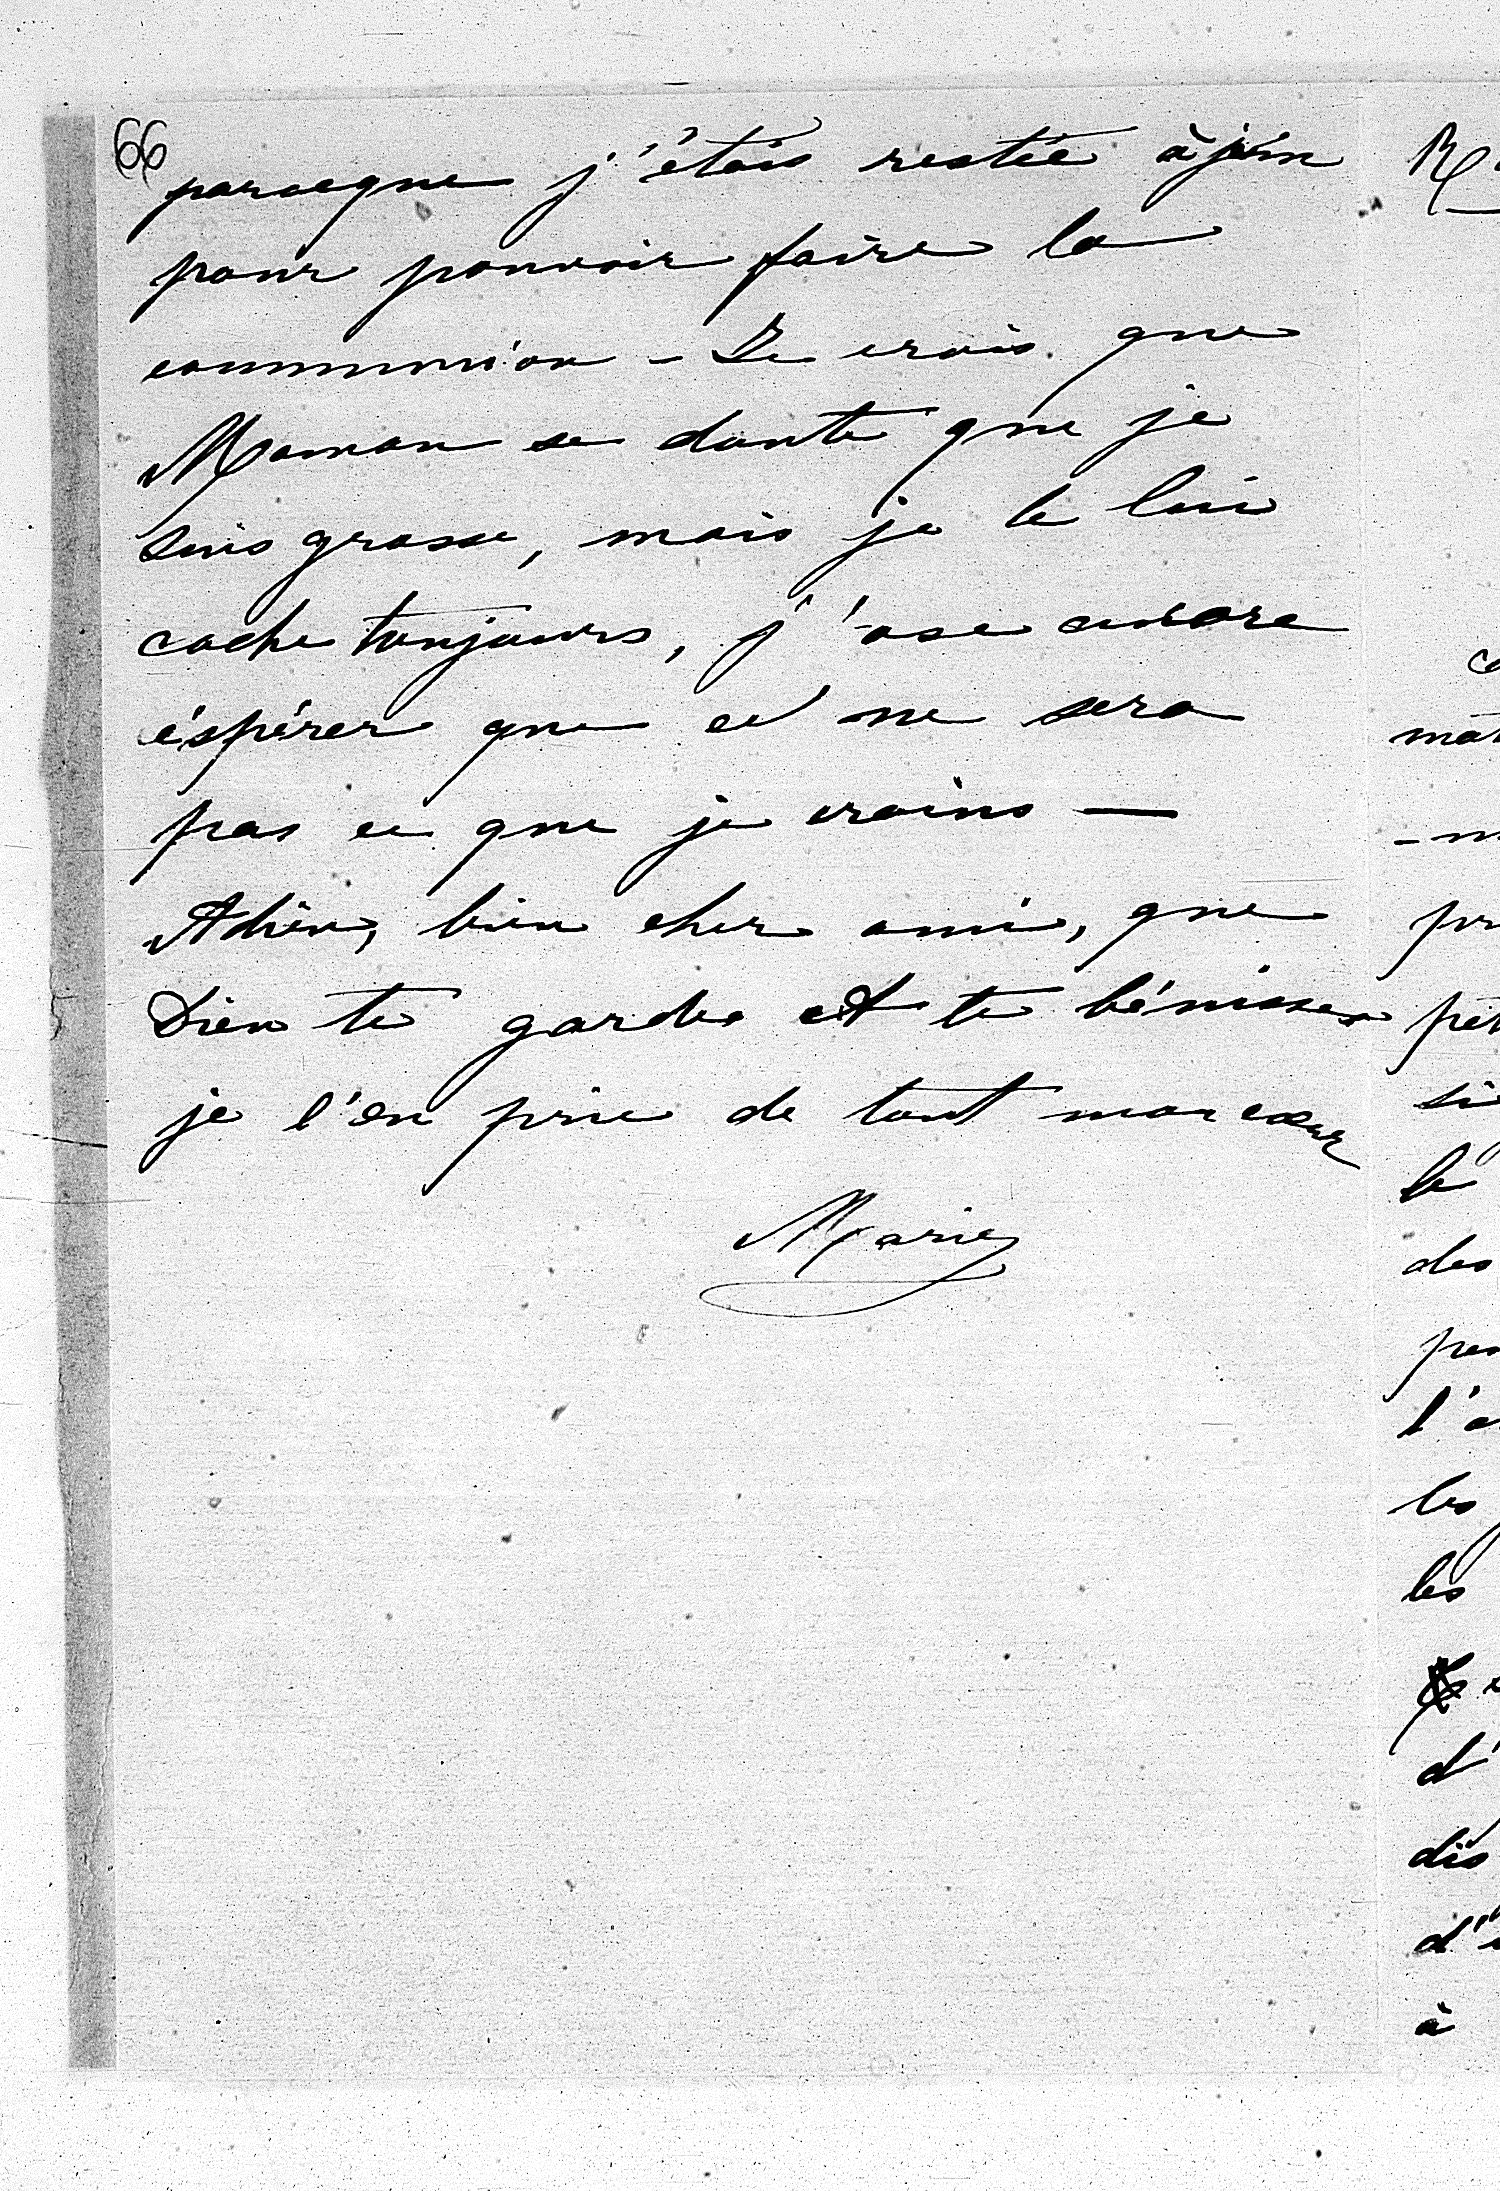 66
parceque j'étais restée à jeûn
pour pouvoir faire la
communion – Je crois que
Maman se doute que je
suis grosse, mais je le lui
cache toujours, j'ose encore
éspérer que ce ne sera
pas ce que je crains —
Adieu, bien cher ami, que
Dieu te garde et te bénisse
je l'en prie de tout mon cœur
Marie
mat
- m
pr
pet
si
le
des
pen
l'a
les
les
d'
dis
d'
à